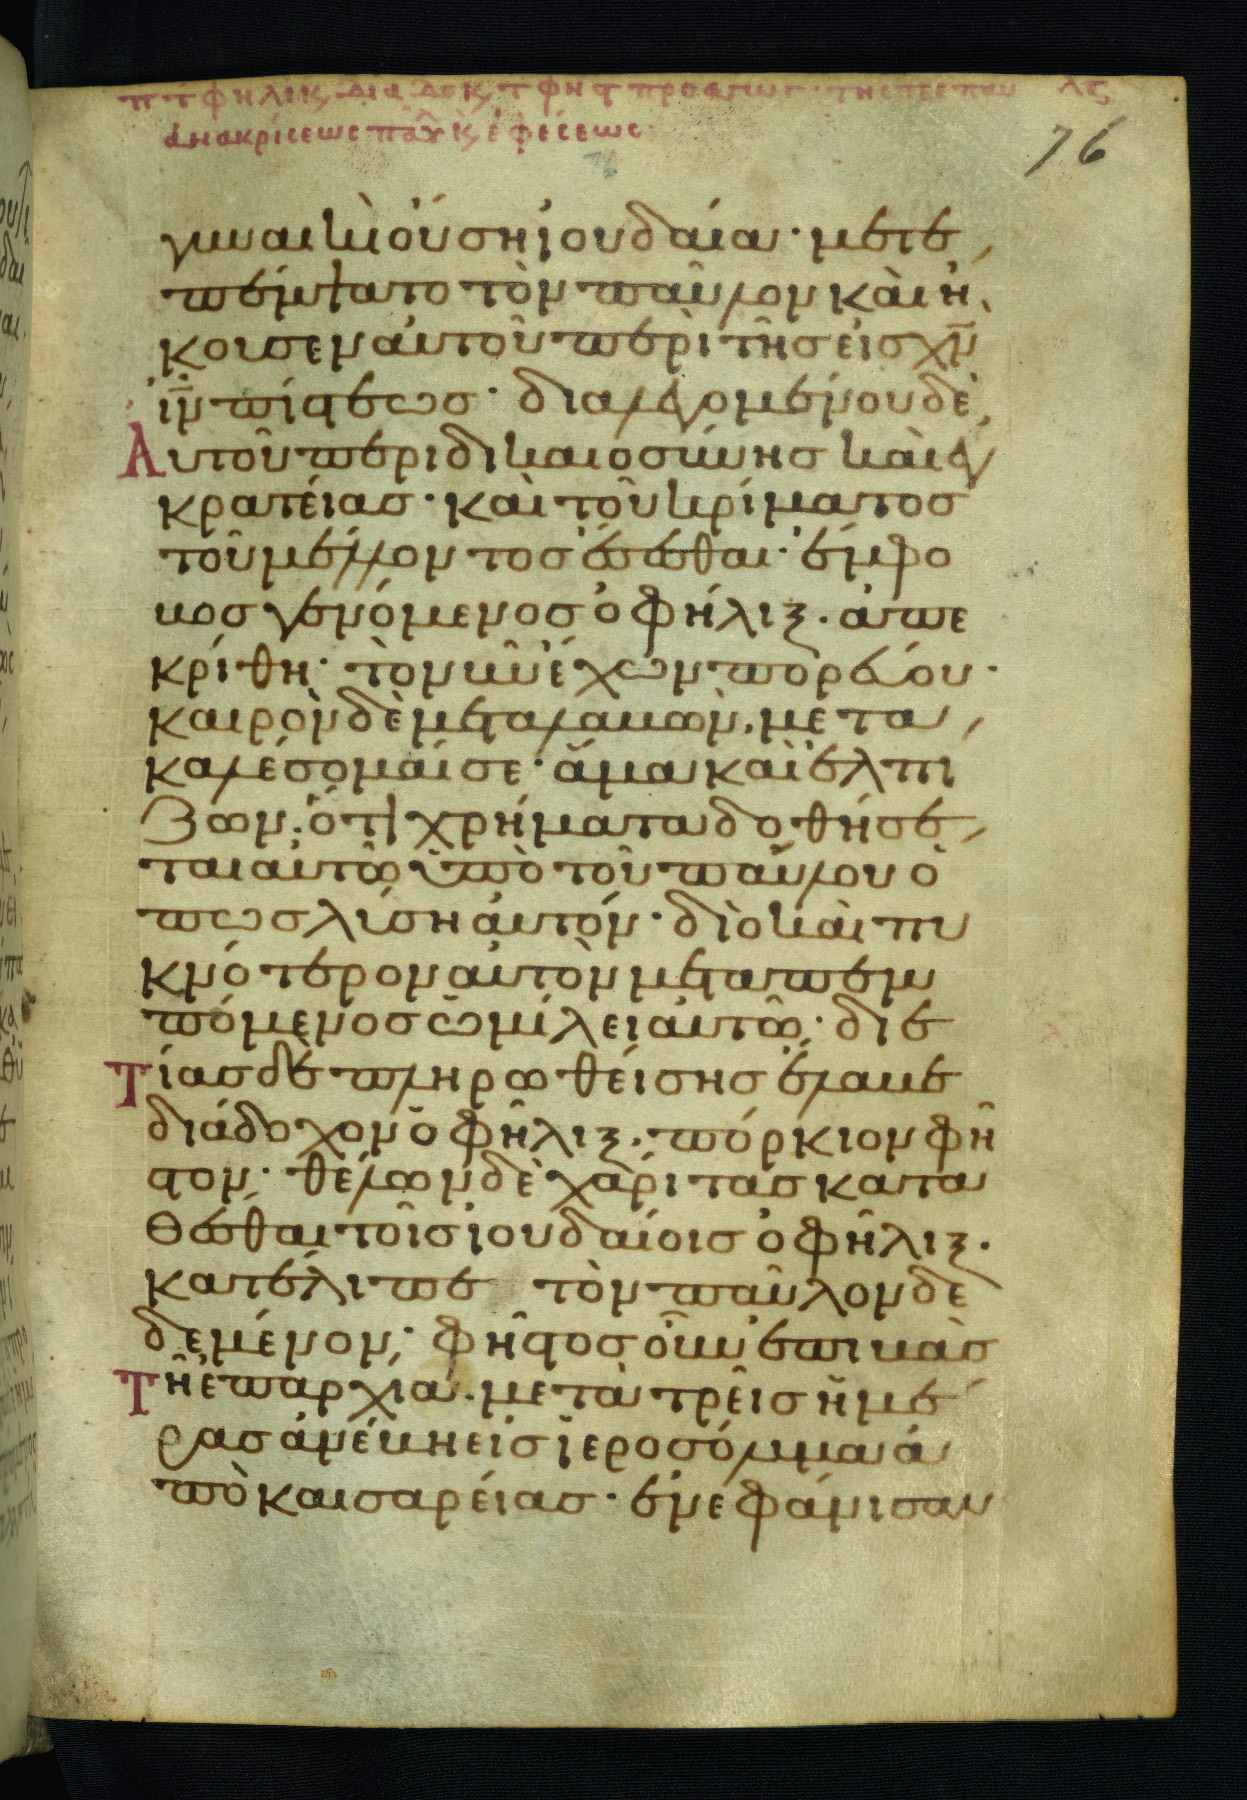 76
γυναικὶ οὔση ἰουδαία· μετε
πέμψατο τὸν παῦλον καὶ ἤ
κουσεν αὐτοῦ περὶ τῆσ εἰσ χ̅ν̅
ι̅ν̅ πίστεωσ· διαλεγομένου δὲ
Αυτοῦ περι δικαιοσύνησ καὶ ἐγ
κρατείασ· καὶ τοῦ κρίματοσ
τοῦ μέλλοντοσ ἔσεσθαι· ἔμφο
βοσ γενόμενοσ ὁ φήλιξ· ἀπε
κρίθη· τὸ νῦν ἔχων πορεύου·
καιρὸν δὲ μεταλαβὼν, μετα
καλέσομαί σε· ἅμα καὶ ἐλπι
ζων· ὅτι χρήματα δοθήσε
ται αὐτῶ ὑπὸ τοῦ παύλου ὅ
πωσ λύση αὐτόν· διὸ καὶ πυ
κνότερον αὐτὸν μεταπεμ
πόμενοσ ὡμίλει αὐτῶ· διε
Τίασ δὲ πληρωθείσησ ἔλαβε
διάδοχον ὁ φῆλιξ, πόρκιον φῆ
στον· θέλων δὲ χάριτασ κατα
θέσθαι τοῖσ ἰουδαίοισ ὁ φῆλιξ·
κατέλιπε τὸν παῦλον δε
δεμένον· φῆστοσ οὖν ἐπιβὰσ
Τῆ ἐπαρχία· μετὰ τρεῖσ ἡμέ
ρασ ἀνέβη εἰσ ἱεροσόλυμα ἀ
πὸ καισαρείασ· ἐνεφάνισαν